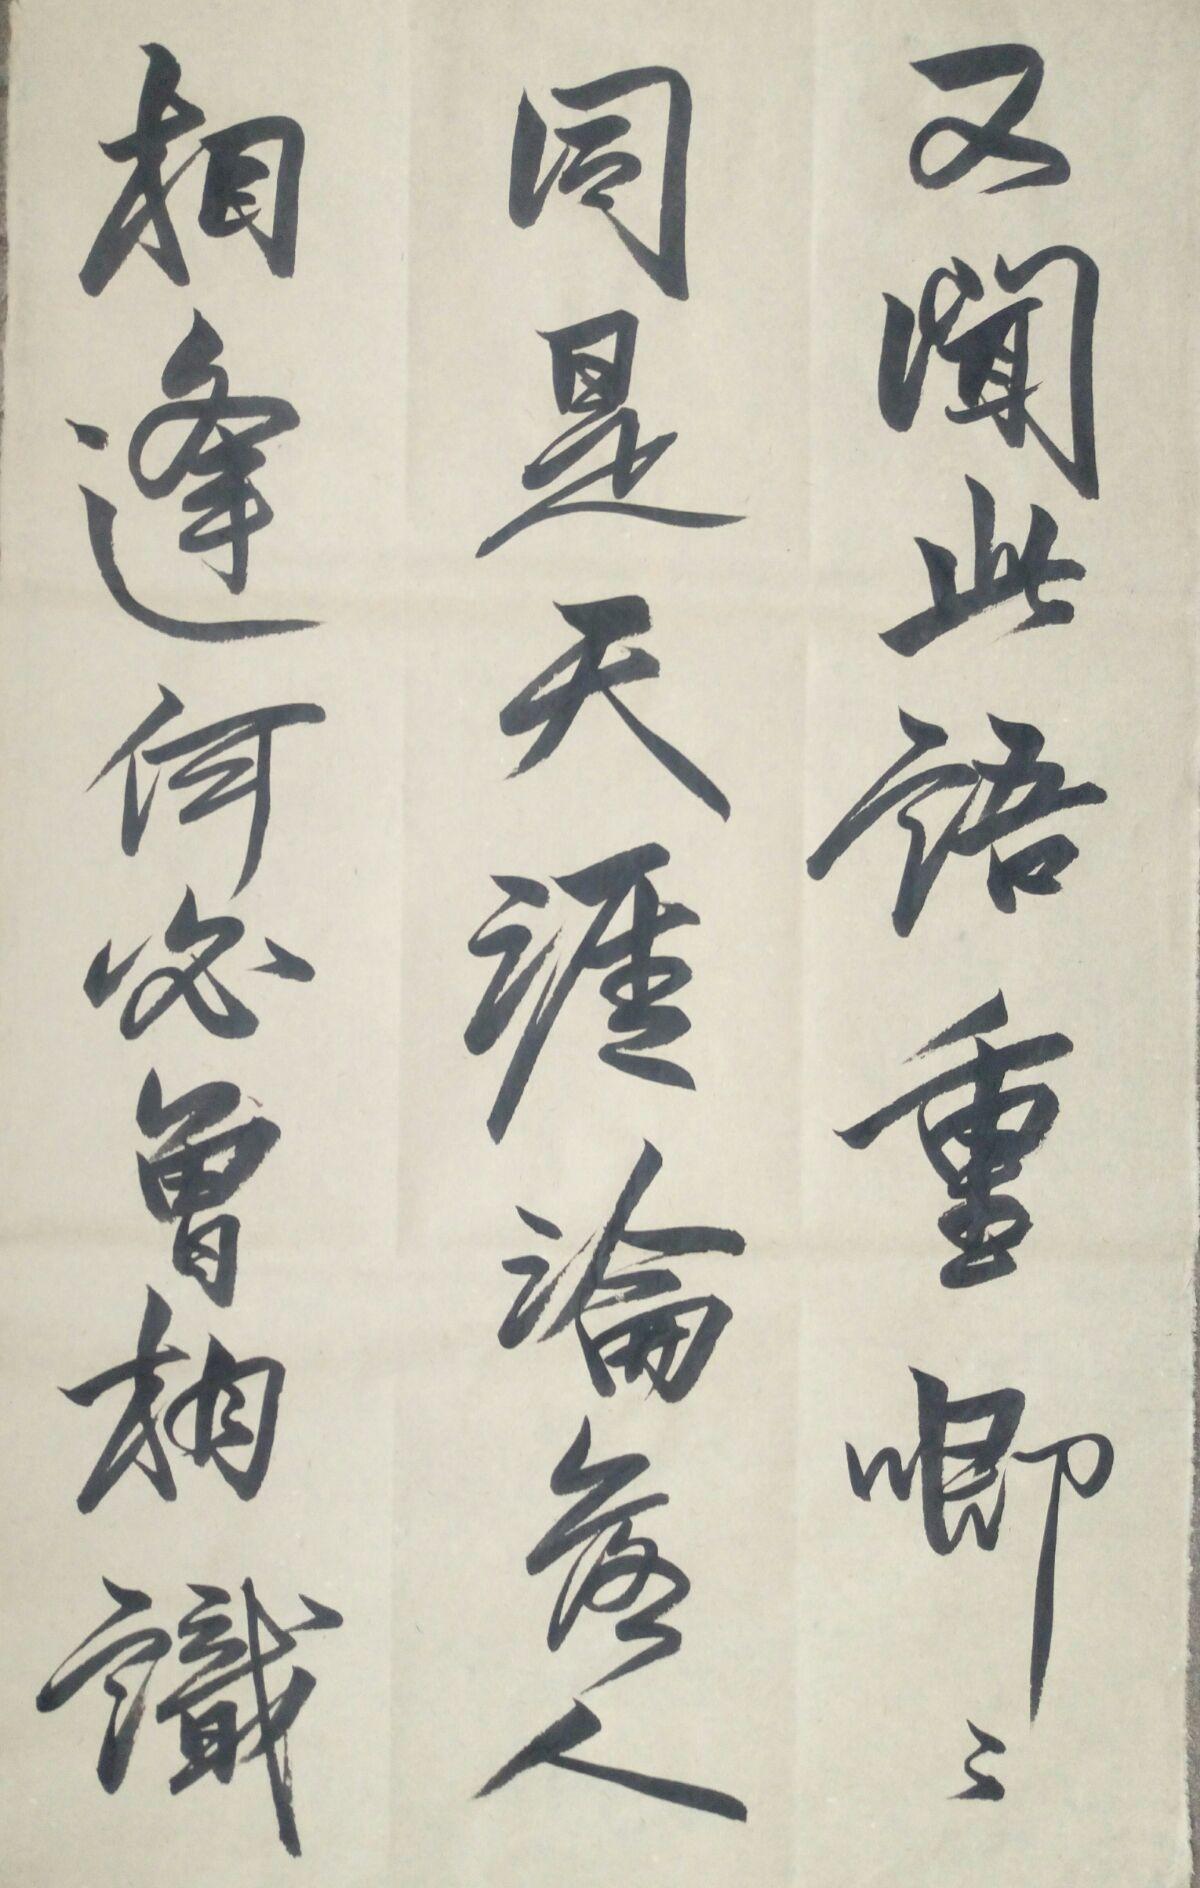 又聞此語重唧〻
同是天涯淪落人
相逢何必曾相識